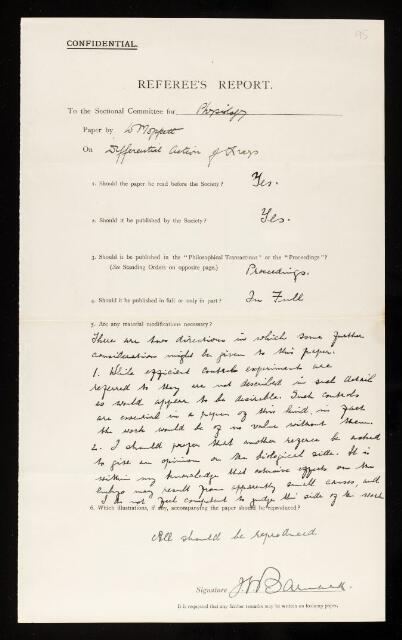 95
CONFIDENTIAL.
REFEREE'S REPORT.
To the Sectional Committee for Physiology
Paper by W Moppett
On Differential Action of X rays
1. Should the paper be read before the Society? Yes.
2. Should it be published by the Society? Yes.
3. Should it be published in the "Philosophical Transactions" or the "Proceedings"?
(See Standing Orders on opposite page.) Proceedings.
4. Should it be published in full or only in part? In Full
5. Are any material modifications necessary?
There are two directions in which some further
consideration might be given to this paper.
1. While efficient controls experiments are
referred to they are not described in such detail
as would appear to be desirable. Such controls
are essential in a paper of this kind, in fact
the work would be of no value without them.
2. I should prefer that another referee be asked
to give an opinion on the biological side. It is
within my knowledge that extensive effects on the
embryo may result from apparently small causes, and
I do not feel competent to judge this side of the work
6. Which illustrations, if any, accompanying the paper should be reproduced?
All should be reproduced.
Signature J. W Barnard.
It is requested that any further remarks may be written on foolscap paper.